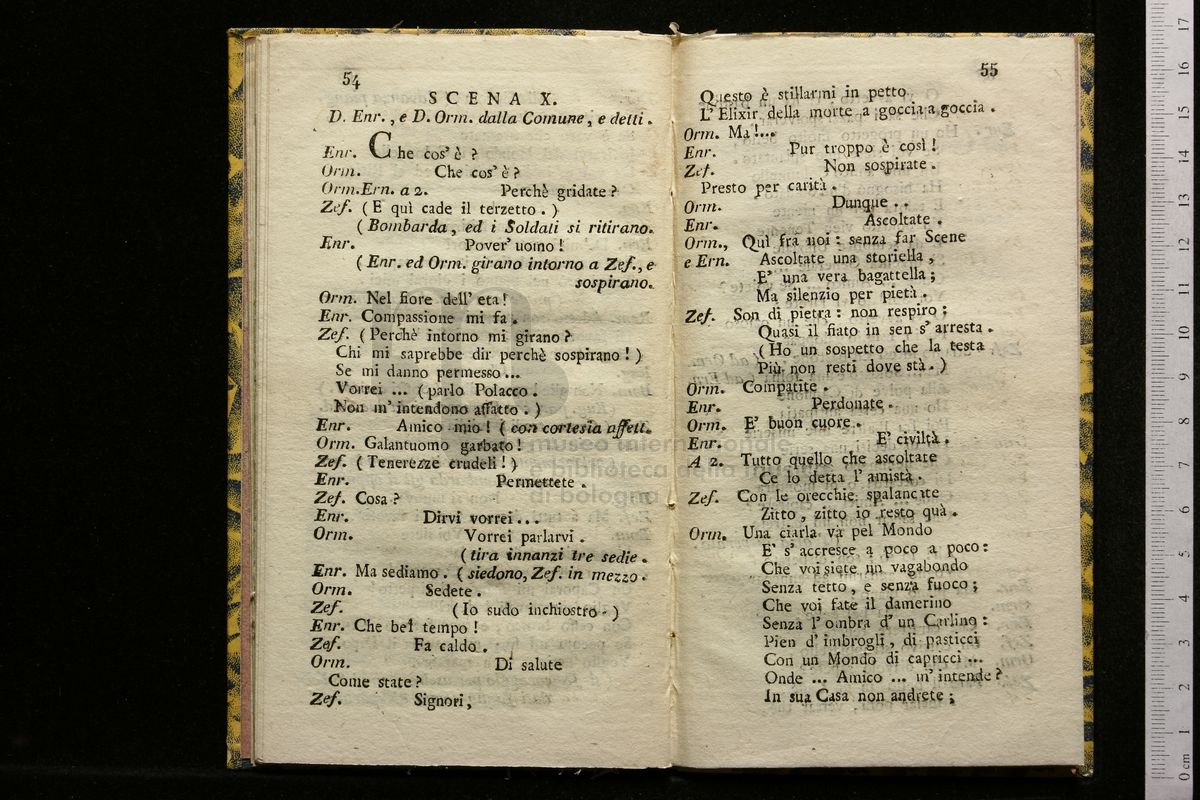 54
SCENA X.
D. Enr., e D. Orm. dalla Comune, e detti.
Enr. Che cos' è ?
Orm. Che cos' è ?
Orm.Ern. a 2. Perchè gridate ?
Zef. ( E quì cade il terzetto . )
( Bombarda, ed i Soldati si ritirano.
Enr. Pover' uomo !
( Enr. ed Orm. girano intorno a Zef., e
sospirano.
Orm. Nel fiore dell' eta !
Enr. Compassione mi fa .
Zef. ( Perchè intorno mi girano ?
Chi mi saprebbe dir perchè sospirano ! )
Se mi danno permesso ...
Vorrei ... ( parlo Polacco .
Non m' intendono affatto . )
Enr. Amico mio ! ( con cortesia affett.
Orm. Galantuomo garbato !
Zef. ( Tenerezze crudeli ! )
Enr. Permettete .
Zef. Cosa ?
Enr. Dirvi vorrei ...
Orm. Vorrei parlarvi .
( tira innanzi tre sedie .
Enr. Ma sediamo . ( siedono, Zef. in mezzo .
Orm. Sedete .
Zef. ( Io sudo inchiostro . )
Enr. Che bel tempo !
Zef. Fa caldo .
Orm. Di salute
Come state ?
Zef. Signori,
55
Questo è stillarmi in petto
L' Elixir della morte a goccia a goccia .
Orm. Ma !...
Enr. Pur troppo è così !
Zef. Non sospirate .
Presto per carità .
Orm. Dunque . .
Enr. Ascoltate .
Orm., Quì fra noi : senza far Scene
e Ern. Ascoltate una storiella ,
E' una vera bagattella ;
Ma silenzio per pietà .
Zef. Son di pietra : non respiro ;
Quasi il fiato in sen s' arresta .
( Ho un sospetto che la testa
Più non resti dove stà . )
Orm. Compatite .
Enr. Perdonate .
Orm. E' buon cuore .
Enr. E' civiltà .
A 2. Tutto quello che ascoltate
Ce lo detta l' amistà .
Zef. Con le orecchie spalancate
Zitto , zitto io resto quà .
Orm. Una ciarla và pel Mondo
E' s' accresce a poco a poco :
Che voi siete un vagabondo
Senza tetto , e senza fuoco ;
Che voi fate il damerino
Senza l' ombra d' un Carlino :
Pien d' imbrogli , di pasticci
Con un Mondo di capricci ...
Onde ... Amico ... m' intende ?
In sua Casa non andrete ;
museo internazionale
e biblioteca della musica
di bologna